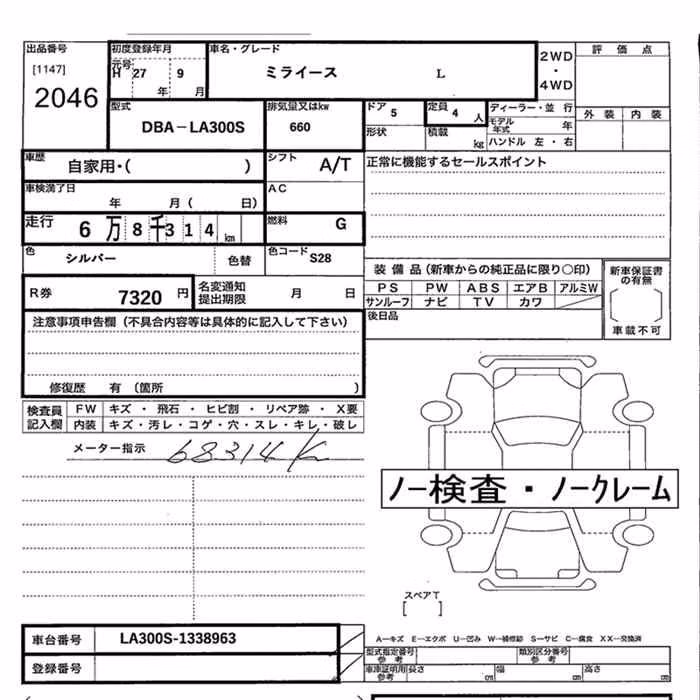 出品番号 初度登録年月 車名・グレード 2WD・4WD 評価点
[1147] 元号 H 27 年 9 月 ミライース L
2046
型式 排気量又はkw ドア 5 定員 4 人 ディーラー・並行 外装 内装
DBA-LA300S 660 形状 積載 kg モデル年式 年
ハンドル 左・右
車歴 自家用・( ) シフト A/T 正常に機能するセールスポイント
車検満了日 年 月( 日) AC
走行 6万8千314km 燃料 G
色 シルバー 色替 色コード S28
装備品(新車からの純正品に限り○印) 新車保証書の有無
R券 7320円 名変通知提出期限 月 日 PS PW ABS エアB アルミW
サンルーフ ナビ TV カワ
車載不可
注意事項申告欄(不具合内容等は具体的に記入して下さい) 後日品
修復歴 有(箇所 )
検査員記入欄 FW キズ・飛石・ヒビ割・リペア跡・X要
内装 キズ・汚レ・コゲ・穴・スレ・キレ・破レ
メーター指示 68314K
ノー検査・ノークレーム
スペアT
[ ]
車台番号 LA300S-1338963 A-キズ E-エクボ U-凹み W-補修跡 S-サビ C-腐食 XX-交換済
型式指定番号 参考 類別区分番号 参考
登録番号 車庫証明用 参考 長さ cm 幅 cm 高さ cm